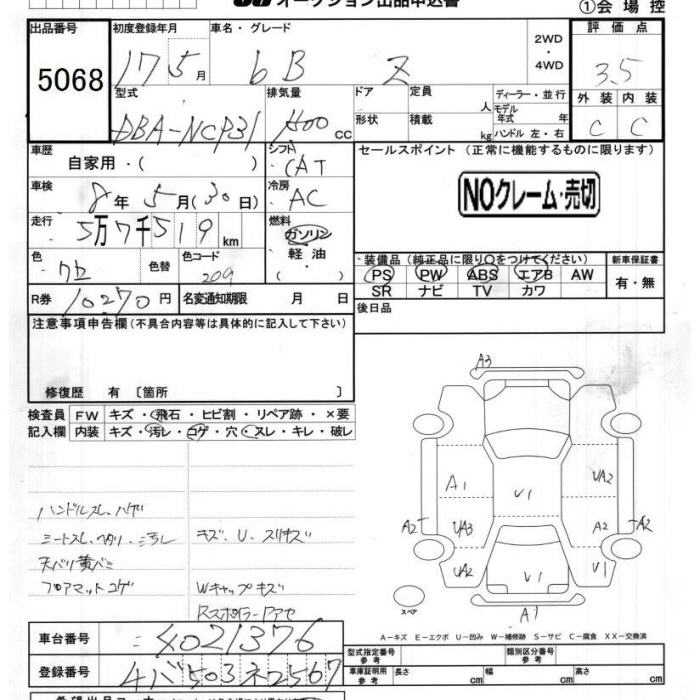 オークション出品申込書
①会場控
出品番号 5068
初度登録年月 17 5月
車名・グレード bB Z
2WD
・
4WD
評価点 3.5
外装 C 内装 C
型式 DBA-NCP31
排気量 cc
ドア
形状
定員 人
積載 kg
ディーラー・並行
モデル年式 年
ハンドル 左・右
車歴 自家用・( )
シフト CAT
セールスポイント (正常に機能するものに限ります)
NOクレーム・売切
車検 8年5月(30日)
冷房 AC
走行 5万7千519km
燃料 ガソリン・軽油・( )
色
色替
色コード 209
装備品 (純正品に限り○をつけてください)
PS PW ABS エアB AW
SR ナビ TV カワ
新車保証書
有・無
R券 10270円
名変通知期限 月 日
後日品
注意事項申告欄(不具合内容等は具体的に記入して下さい)
修復歴 有 〔箇所 〕
検査員記入欄
FW キズ・飛石・ヒビ割・リペア跡・×要
内装 キズ・汚レ・コゲ・穴・スレ・キレ・破レ
ハンドルスレ、ハゲ
シートスレ、ヘタリ、コゲ、ヨゴレ
キズ、U、スリキズ
天バリ黄バミ
フロアマットコゲ
Wキャップキズ
Rスポイラー
A3
A1 U1 UA2
A2 UA3 A2 A2
UA2 U1 U1
A1
スペア
A-キズ E-エクボ U-凹み W-補修跡 S-サビ C-腐食 XX-交換済
車台番号 4021376
登録番号 503 ネ2567
型式指定番号 参考
類別区分番号 参考
車庫証明用 参考 長さ cm 幅 cm 高さ cm